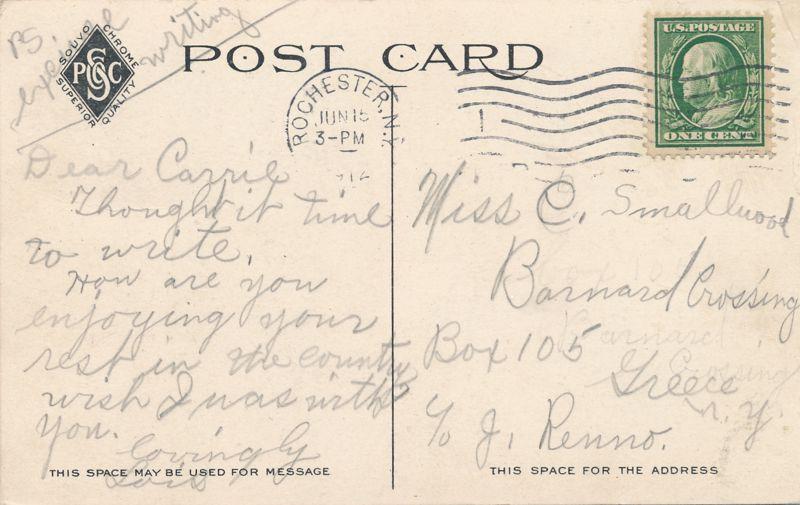 P.S. excuse writing
SOUVO CHROME
PGSC
SUPERIOR QUALITY
POST CARD
ROCHESTER, N.Y.
JUN 15
3-PM
1
U.S. POSTAGE
ONE CENT
Dear Carrie
Thought it time
to write.
How are you
enjoying your
rest in the country
wish I was with
you.
Lovingly
Lois
THIS SPACE MAY BE USED FOR MESSAGE
Miss C. Smallwood
Barnard Crossing
Box 105
Greece
N.Y.
c/o J. Renno.
Barnard
Crossing
THIS SPACE FOR THE ADDRESS